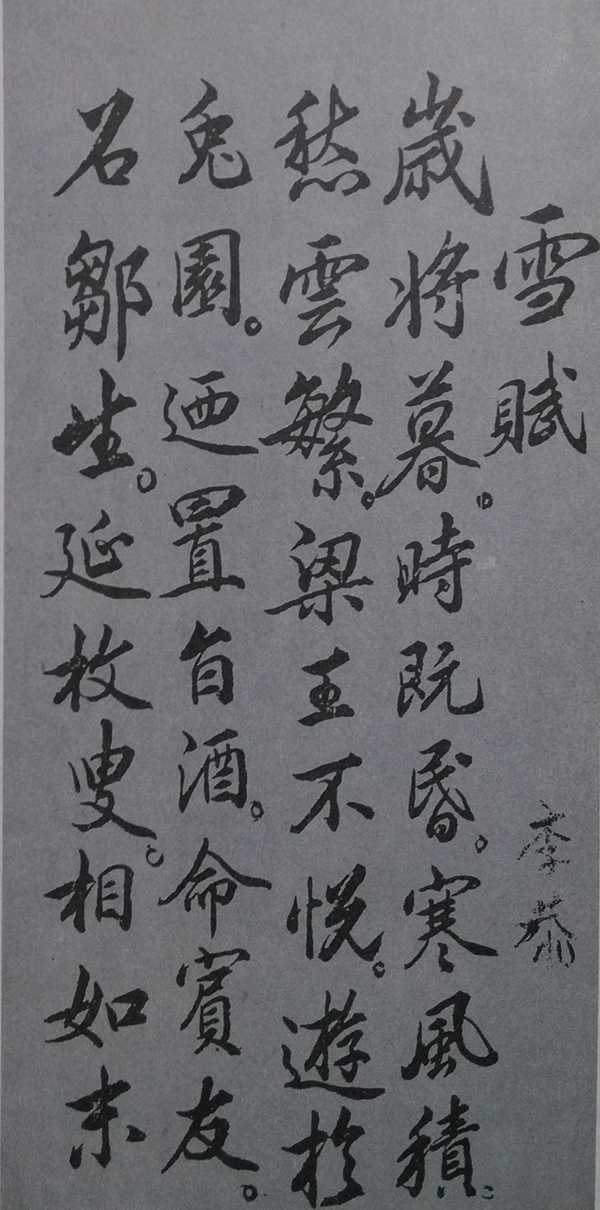 雪賦 李
歲將暮。時既昬。寒風積。
愁雲繁。梁王不悅。遊於
兔園。迺置旨酒。命賓友。
召鄒生。延枚叟。相如末